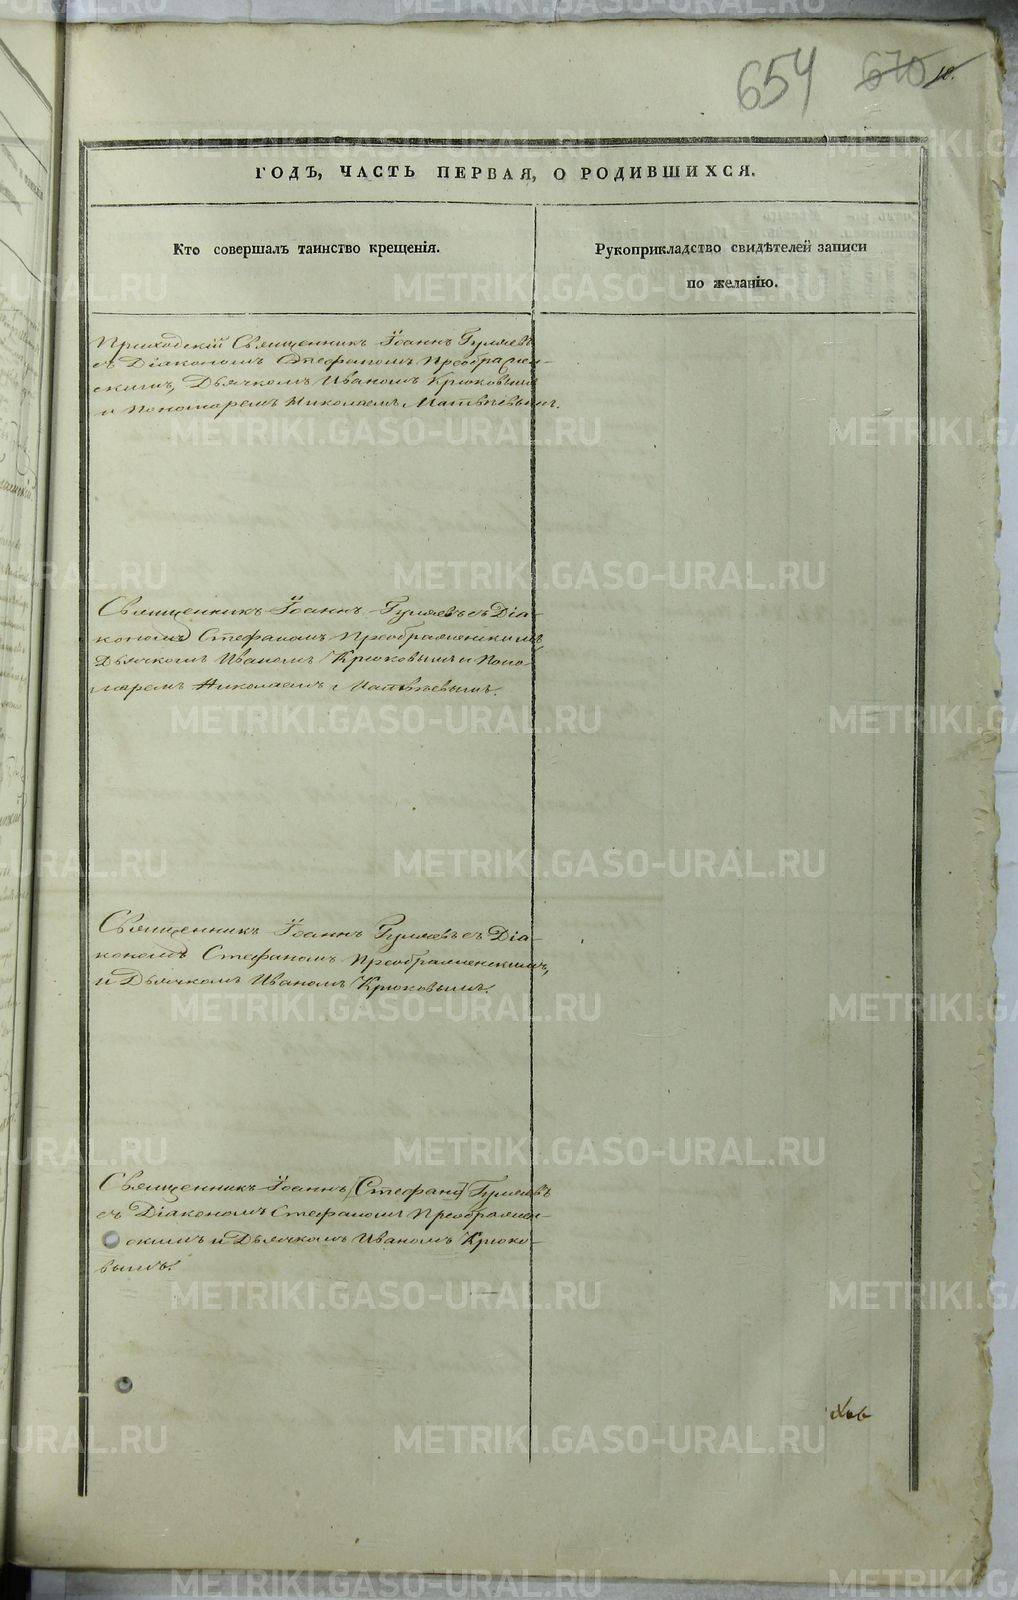 654 670
ГОДЪ, ЧАСТЬ ПЕРВАЯ, О РОДИВШИХСЯ.
Кто совершалъ таинство крещенія.
Рукоприкладство свидѣтелей записи
по желанію.
Приходскій Священникъ Іоаннъ Гуляевъ
съ Діакономъ Стефаномъ Преображен-
скимъ, Дьячкомъ Иваномъ Крюковымъ
и Пономаремъ Николаемъ Матвѣевымъ.
Священникъ Іоаннъ Гуляевъ съ Діа-
кономъ Стефаномъ Преображенскимъ,
Дьячкомъ Иваномъ Крюковымъ и Поно-
маремъ Николаемъ Матвѣевымъ.
Священникъ Іоаннъ Гуляевъ съ Діа-
кономъ Стефаномъ Преображенскимъ,
и Дьячкомъ Иваномъ Крюковымъ.
Священникъ Іоаннъ (Стефанъ) Гуляевъ
съ Діакономъ Стефаномъ Преображен-
скимъ и Дьячкомъ Иваномъ Крюко-
вымъ.
METRIKI.GASO-URAL.RU